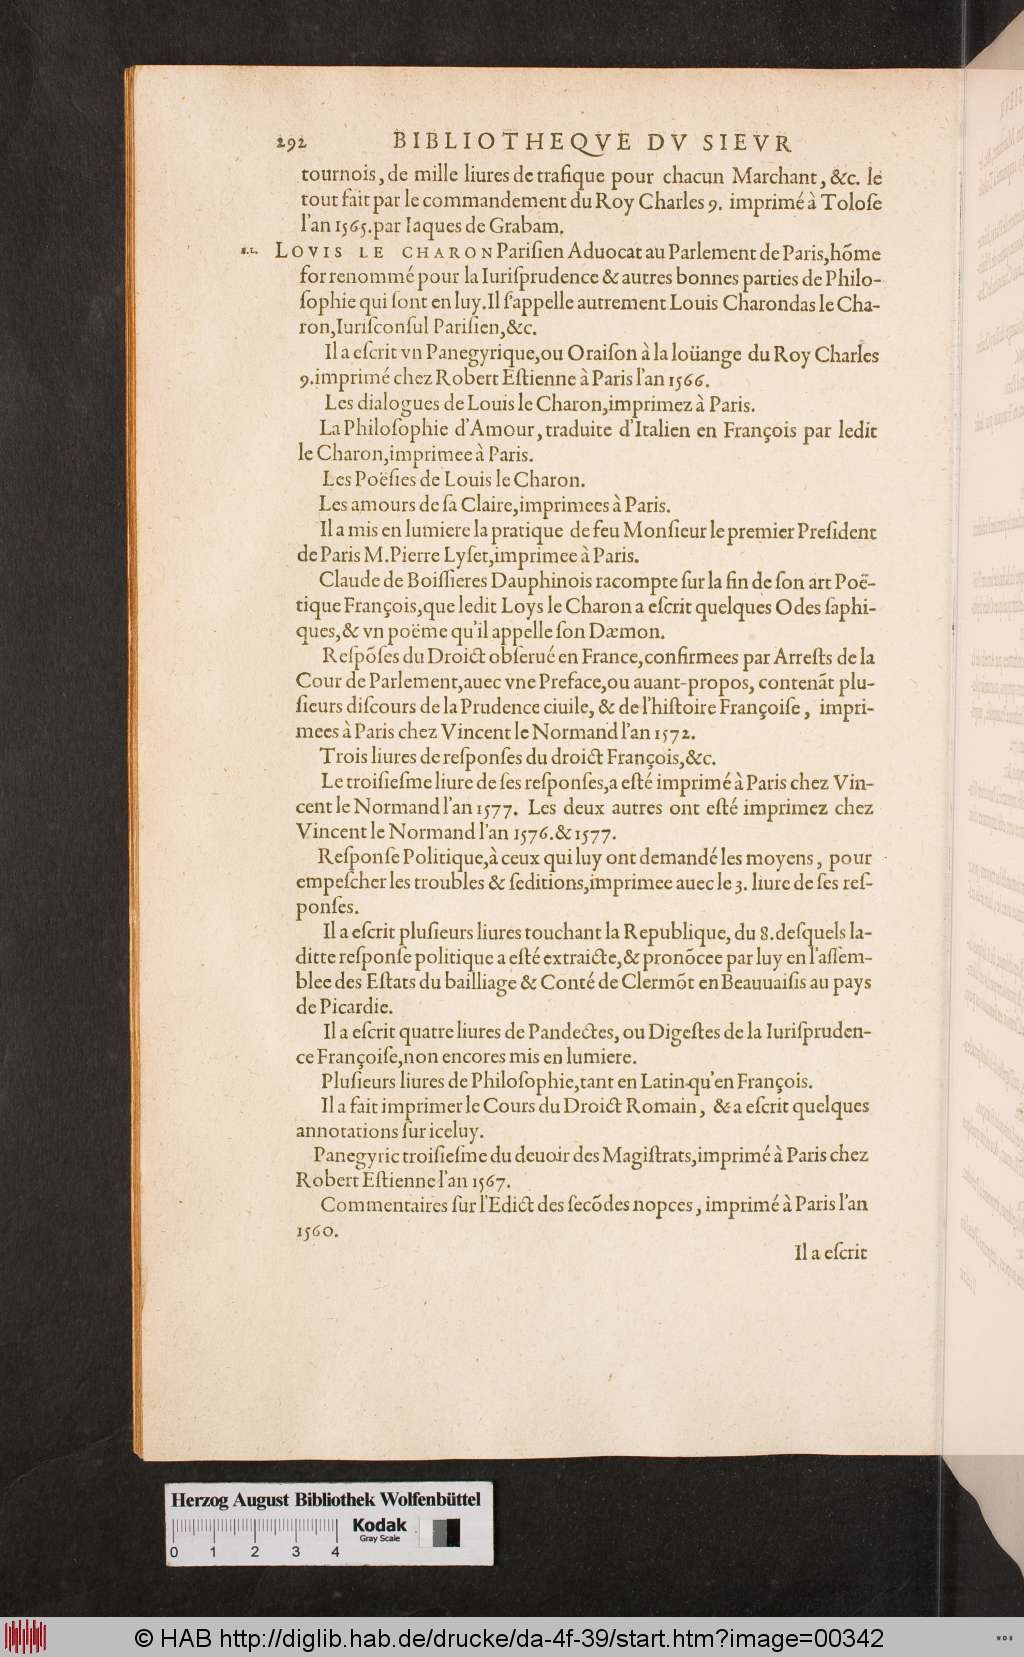 292 BIBLIOTHEQVE DV SIEVR
tournois, de mille liures de trafique pour chacun Marchant, &c. le
tout fait par le commandement du Roy Charles 9. imprimé à Toloſe
l'an 1565. par Iaques de Grabam.
LOVIS LE CHARON Pariſien Aduocat au Parlement de Paris, hõme
for renommé pour la Iuriſprudence & autres bonnes parties de Philo-
ſophie qui ſont en luy. Il ſ'appelle autrement Louis Charondas le Cha-
ron, Iuriſconſul Pariſien, &c.
Il a eſcrit vn Panegyrique, ou Oraiſon à la loüange du Roy Charles
9. imprimé chez Robert Eſtienne à Paris l'an 1566.
Les dialogues de Louis le Charon, imprimez à Paris.
La Philoſophie d'Amour, traduite d'Italien en François par ledit
le Charon, imprimee à Paris.
Les Poëſies de Louis le Charon.
Les amours de ſa Claire, imprimees à Paris.
Il a mis en lumiere la pratique de feu Monſieur le premier Preſident
de Paris M. Pierre Lyſet, imprimee à Paris.
Claude de Boiſſieres Dauphinois racompte ſur la fin de ſon art Poë-
tique François, que ledit Loys le Charon a eſcrit quelques Odes ſaphi-
ques, & vn poëme qu'il appelle ſon Dæmon.
Reſpõſes du Droict obſerué en France, confirmees par Arreſts de la
Cour de Parlement, auec vne Preface, ou auant-propos, contenãt plu-
ſieurs diſcours de la Prudence ciuile, & de l'hiſtoire Françoiſe, impri-
mees à Paris chez Vincent le Normand l'an 1572.
Trois liures de reſponſes du droict François, &c.
Le troiſieſme liure de ſes reſponſes, a eſté imprimé à Paris chez Vin-
cent le Normand l'an 1577. Les deux autres ont eſté imprimez chez
Vincent le Normand l'an 1576. & 1577.
Reſponſe Politique, à ceux qui luy ont demandé les moyens, pour
empeſcher les troubles & ſeditions, imprimee auec le 3. liure de ſes reſ-
ponſes.
Il a eſcrit pluſieurs liures touchant la Republique, du 8. deſquels la-
ditte reſponſe politique a eſté extraicte, & pronõcee par luy en l'aſſem-
blee des Eſtats du bailliage & Conté de Clermõt en Beauuaiſis au pays
de Picardie.
Il a eſcrit quatre liures de Pandectes, ou Digeſtes de la Iuriſpruden-
ce Françoiſe, non encores mis en lumiere.
Pluſieurs liures de Philoſophie, tant en Latin qu'en François.
Il a fait imprimer le Cours du Droict Romain, & a eſcrit quelques
annotations ſur iceluy.
Panegyric troiſieſme du deuoir des Magiſtrats, imprimé à Paris chez
Robert Eſtienne l'an 1567.
Commentaires ſur l'Edict des ſecõdes nopces, imprimé à Paris l'an
1560.
Il a eſcrit
Herzog August Bibliothek Wolfenbüttel
Kodak
Gray Scale
0 1 2 3 4
© HAB http://diglib.hab.de/drucke/da-4f-39/start.htm?image=00342